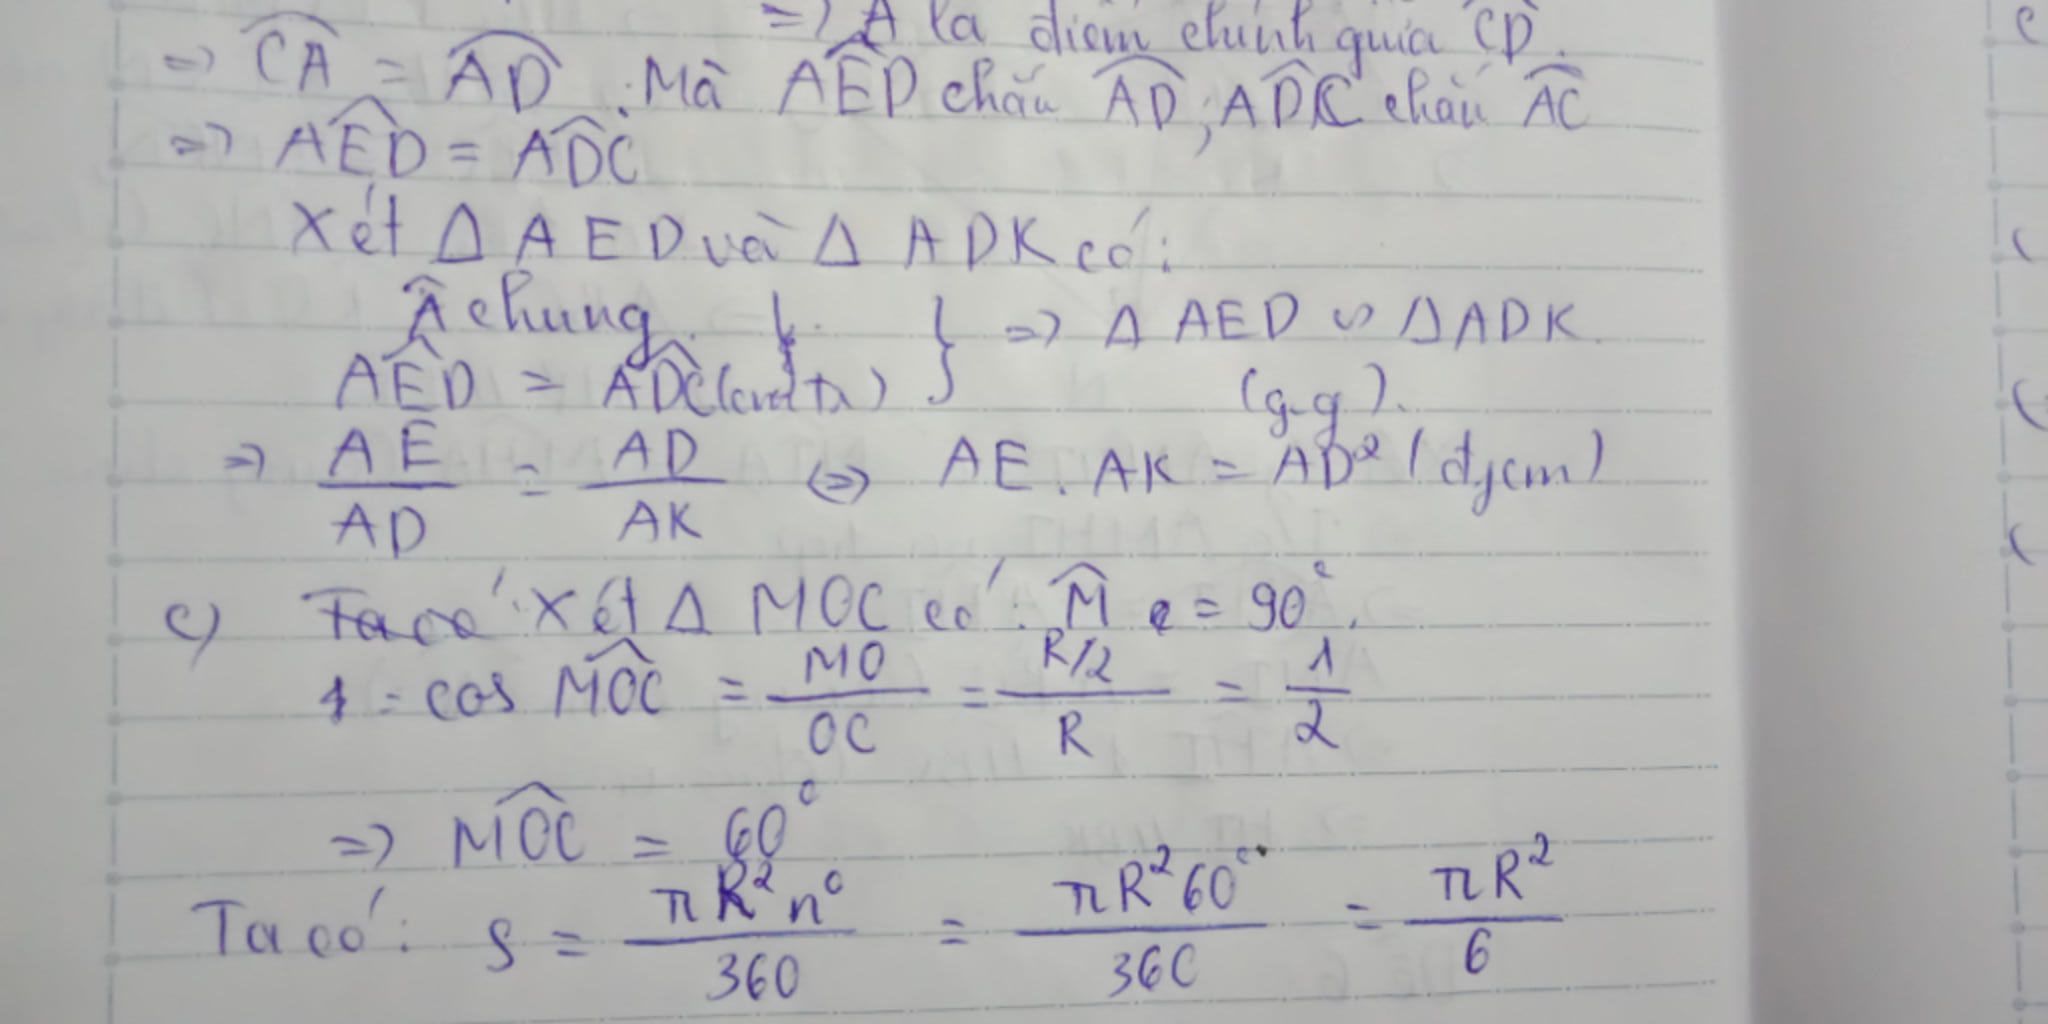 => A là điểm chính giữa CD.
=> CA = AD. Mà AED chắn AD, ADC chắn AC
=> AED = ADC
Xét Δ AED và Δ ADK có:
 chung } => Δ AED ∽ Δ ADK.
AED = ADC (cmtr) (g-g).
=> AE/AD = AD/AK <=> AE . AK = AD² (đpcm)
c) Ta có Xét Δ MOC có: M = 90°.
cos MOC = MO/OC = R/2 / R = 1/2
=> MOC = 60°
Ta có: S = πR²n°/360 = πR²60°/360 = πR²/6